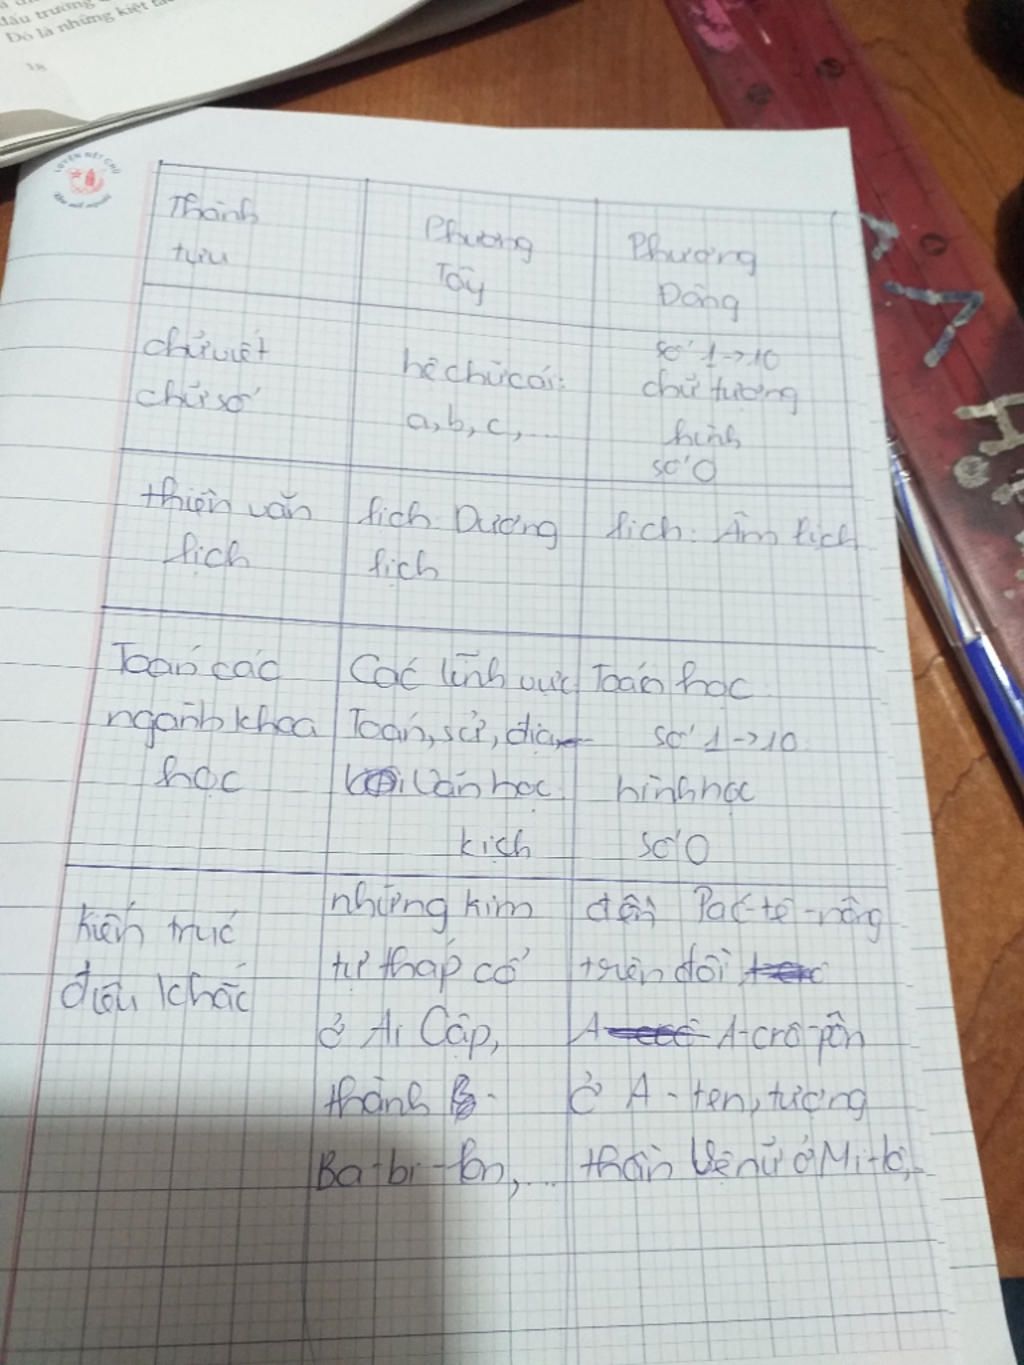 dấu trường
Đó là những kiệt
18
LUYỆN NÉT CHỮ
Rèn nết người
Thành
tựu
Phương
Tây
Phương
Đông
chữ viết
chữ số
hệ chữ cái:
a, b, c, ...
số 1 → 10
chữ tượng
hình
số 0
thiên văn
lịch
lịch: Dương
lịch
lịch: Âm lịch
Toán các
ngành khoa
học
Các lĩnh vực
Toán, sử, địa,
Văn học
kịch
Toán học
số 1 → 10
hình học
số 0
kiến trúc
điêu khắc
những kim
tự tháp cổ
ở Ai Cập,
thành
Ba-bi-lon, ...
đền Pác-tê-nông
trên đồi
A-crô-pôn
ở A-ten, tượng
thần Vệ nữ ở Mi-lô,